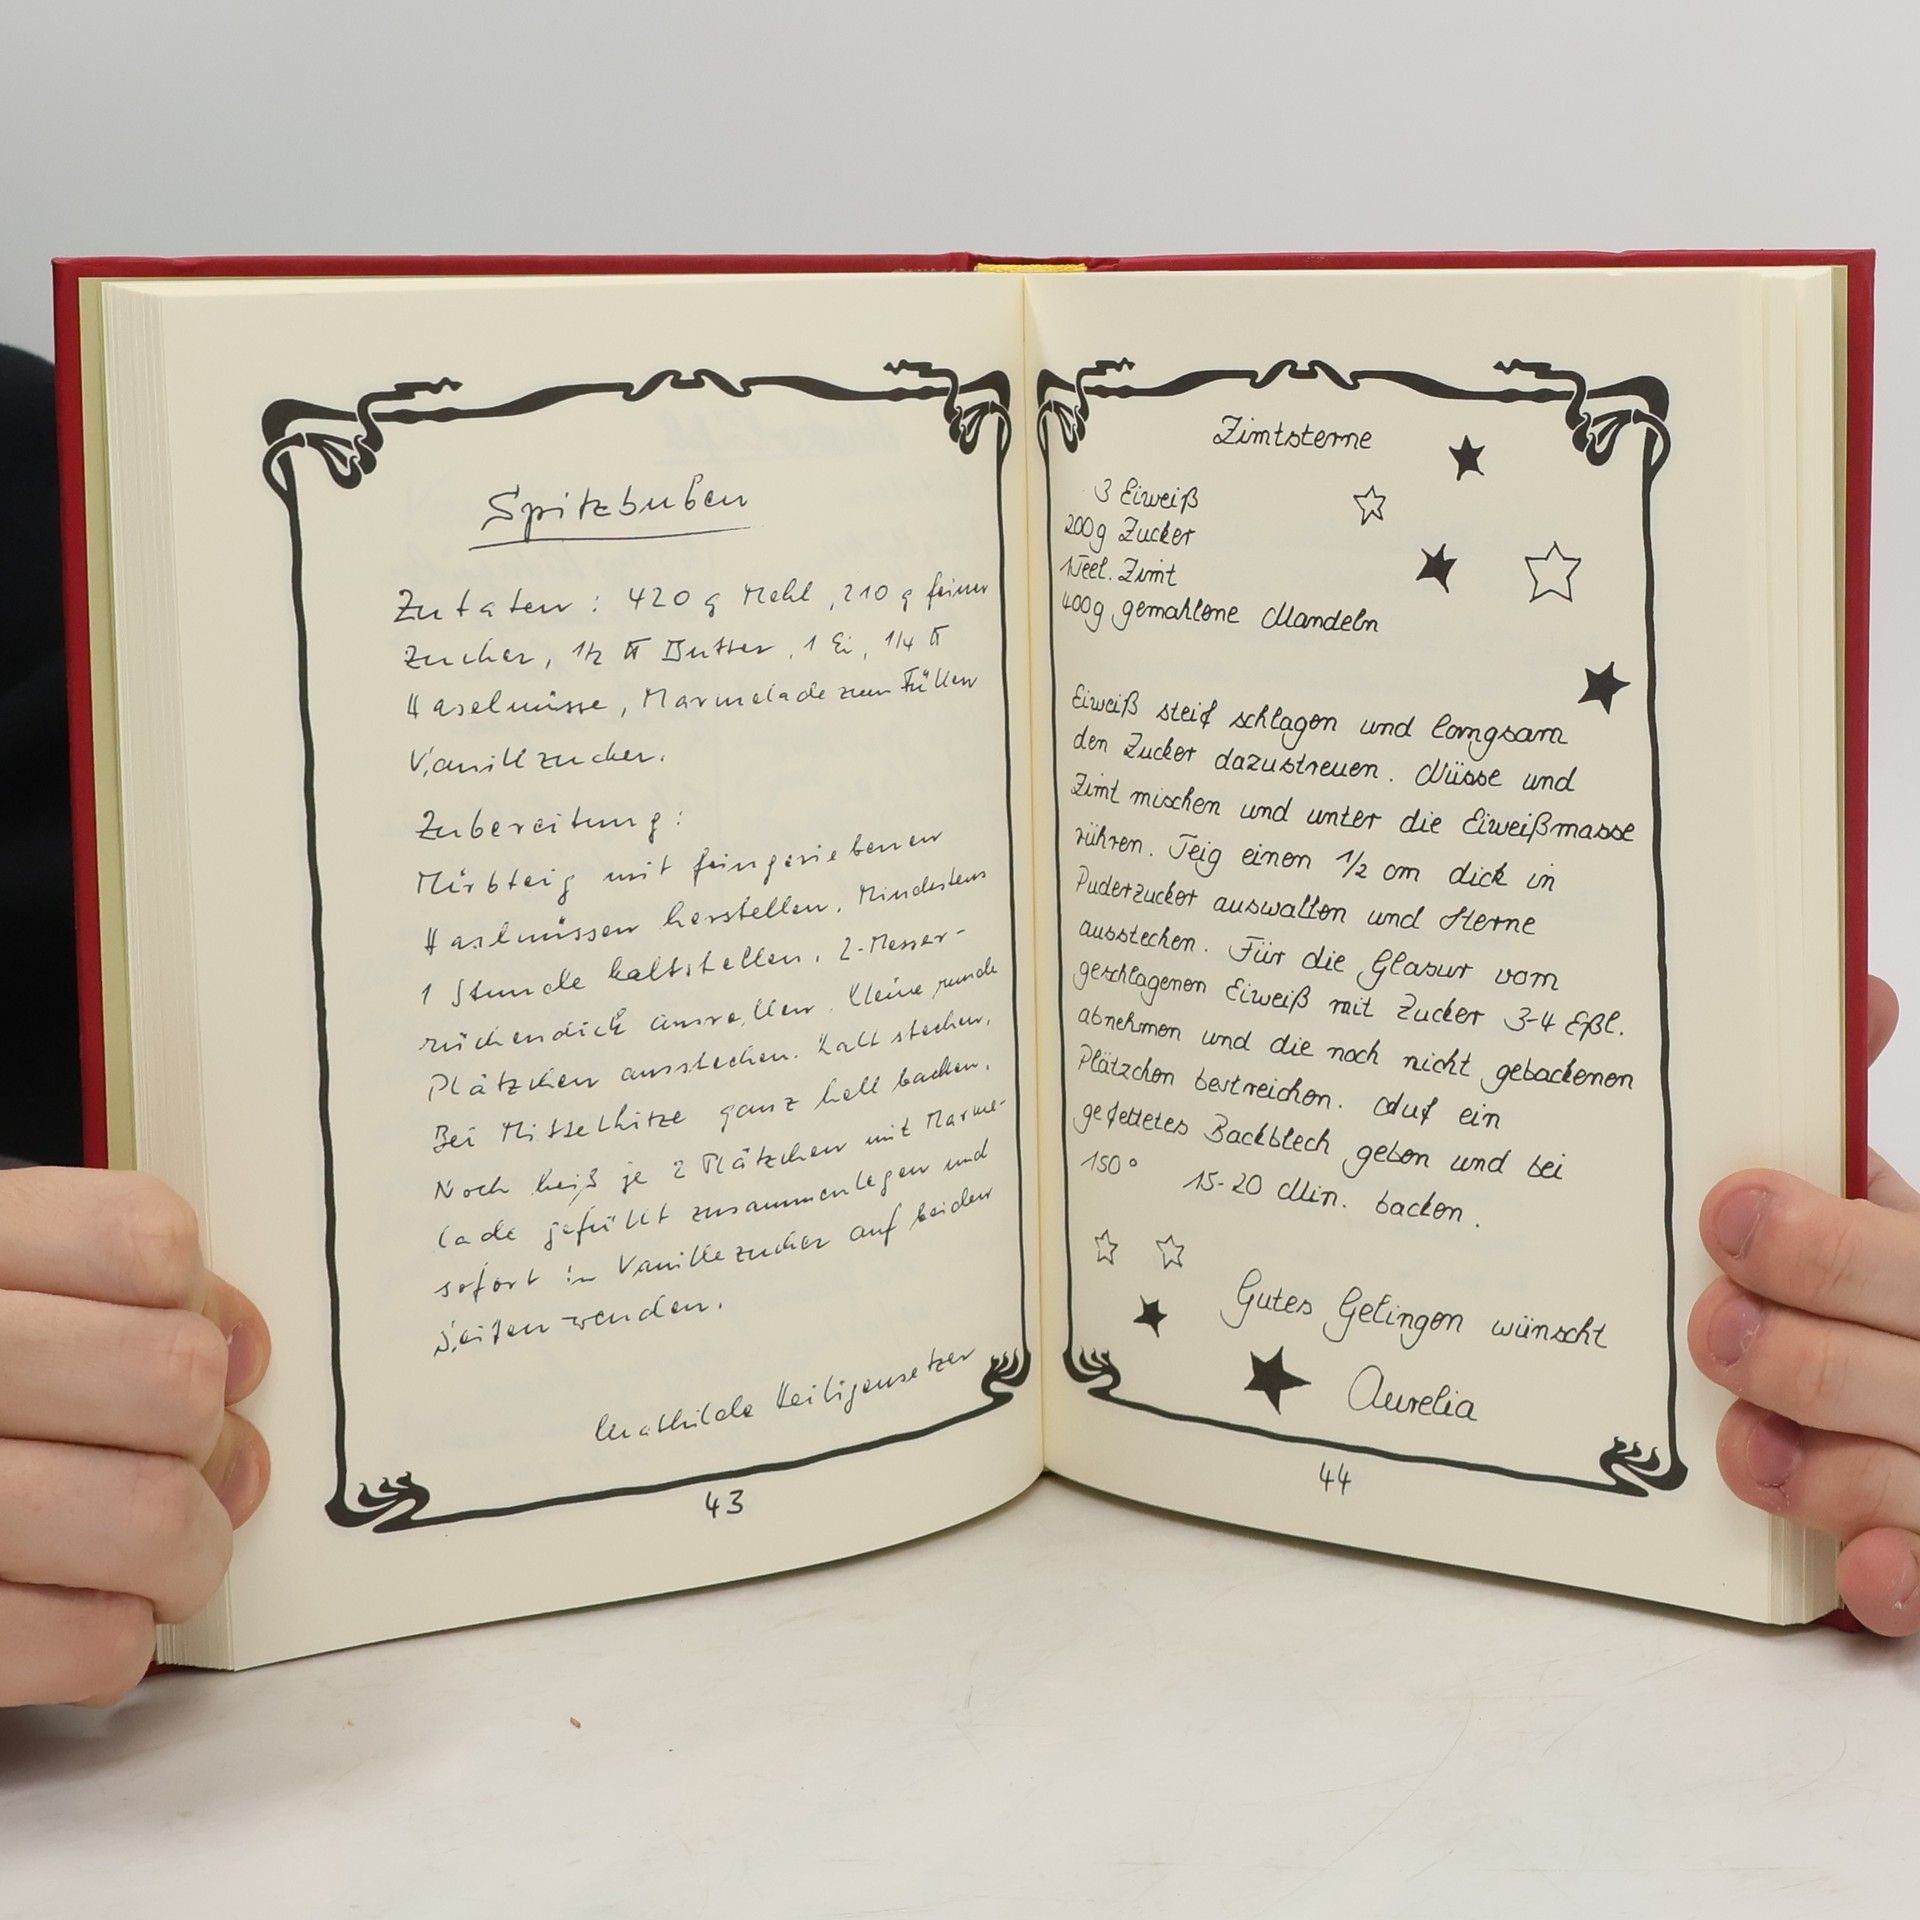 Spitzbuben
Zutaten : 420 g Mehl, 210 g feiner
Zucker, 1/2 ℔ Butter, 1 Ei, 1/4 ℔
Haselnüsse, Marmelade zum Füllen
Vanillzucker.
Zubereitung :
Mürbteig mit feingeriebenen
Haselnüssen herstellen. Mindestens
1 Stunde kaltstellen. 2-Messer-
rückendick ausrollen. Kleine runde
Plätzchen ausstechen. Kalt stechen.
Bei Mittelhitze ganz hell backen.
Noch heiß je 2 Plätzchen mit Marme-
lade gefüllt zusammenlegen und
sofort in Vanillezucker auf beiden
Seiten wenden.
Mathilde Heiligensetzer
43
Zimtsterne
3 Eiweiß
200g Zucker
1Teel. Zimt
400g gemahlene Mandeln
Eiweiß steif schlagen und langsam
den Zucker dazustreuen. Nüsse und
Zimt mischen und unter die Eiweißmasse
rühren. Teig einen 1/2 cm dick in
Puderzucker auswallen und Sterne
ausstechen. Für die Glasur vom
geschlagenen Eiweiß mit Zucker 3-4 Eßl.
abnehmen und die noch nicht gebackenen
Plätzchen bestreichen. Auf ein
gefettetes Backblech geben und bei
150° 15-20 Min. backen.
Gutes Gelingen wünscht
Aurelia
44